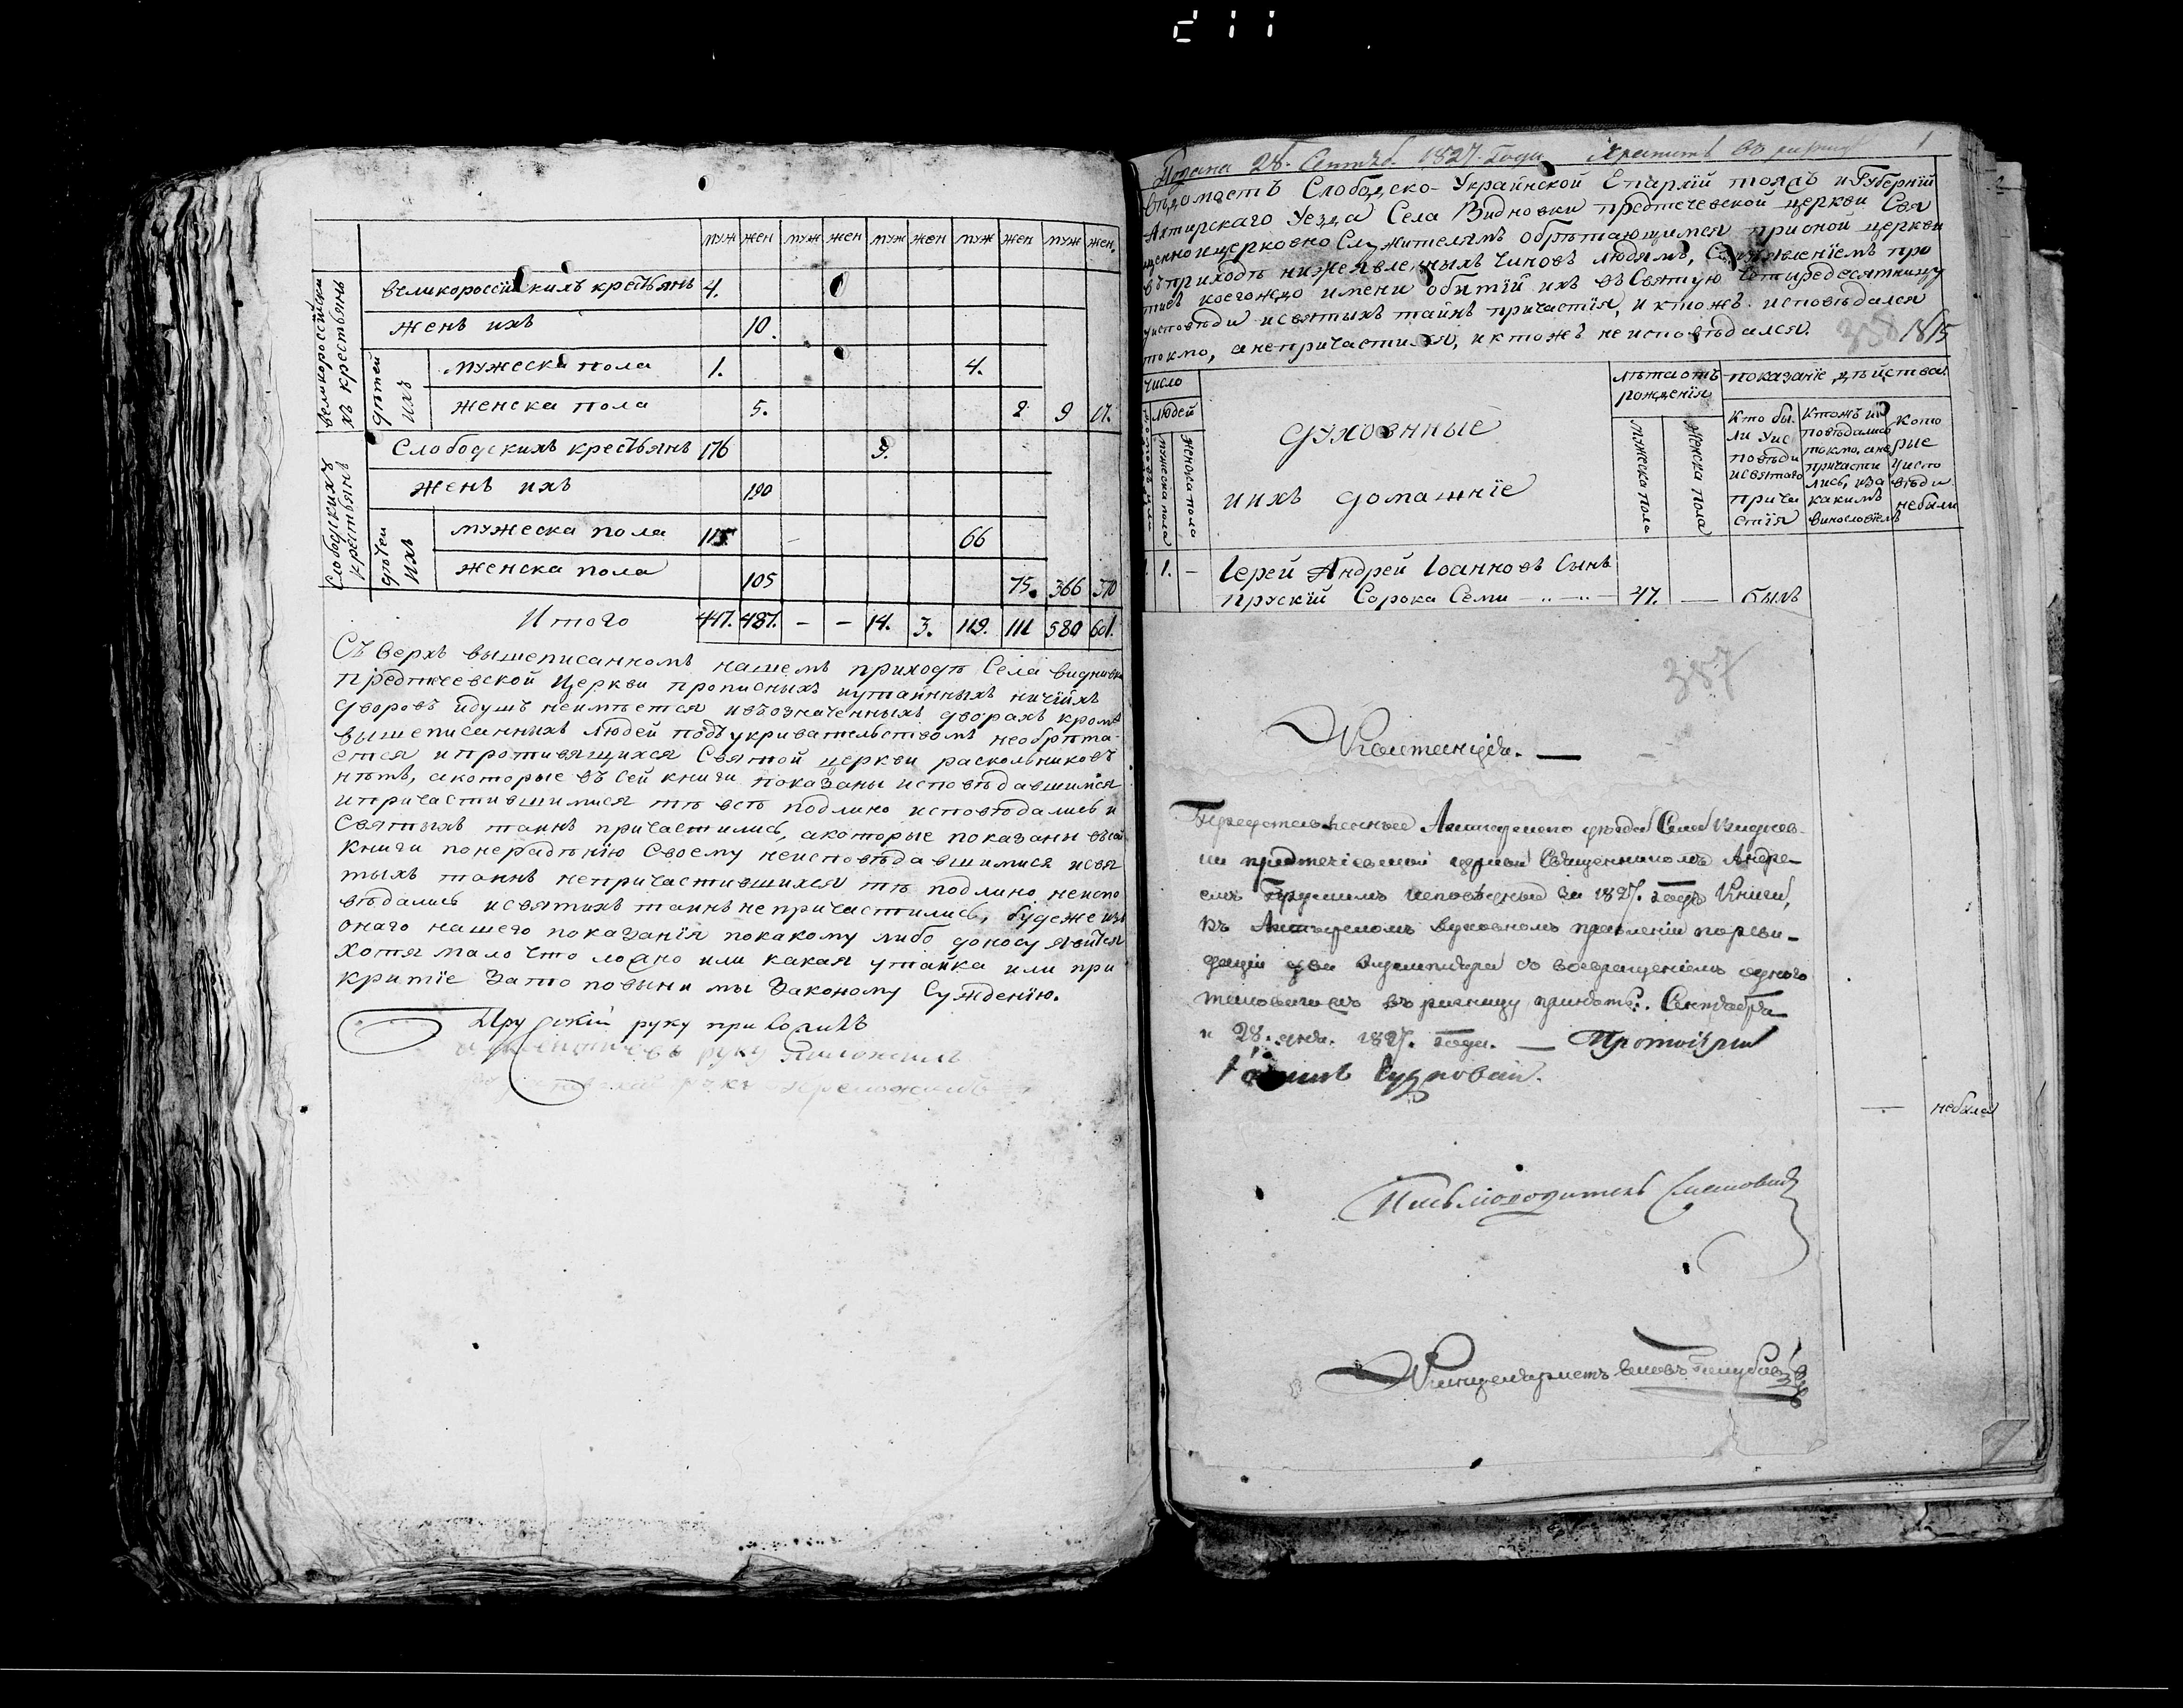 211
муж жен муж жен муж жен муж жен муж жен.
великороссійских крестьянъ
великороссійскихъ крестьянъ 4.
женъ ихъ 10.
дѣтей ихъ
мужеска пола 1. 4.
женска пола 5. 2 9 17.
Слободскихъ крестьянъ
Слободскихъ крестьянъ 176 9.
женъ ихъ 190
дѣтей ихъ
мужеска пола 115 - 66
женска пола 105 75. 366 370
Итого 447. 487. - - 14. 3. 119. 111 580 601.
Съ верхъ вышеписанномъ нашемъ приходѣ Села видновки
предтечевской церкви прописныхъ иутаинныхъ ничіихъ
дворовъ идушъ неимѣется ивъозначенныхъ дворахъ кромѣ
вышеписанныхъ людей подъ укривательствомъ необрѣта-
ется ипротивящихся Святой церкви раскольниковъ
нѣтъ, акоторые въ сей книги показаны исповѣдавшимся
ипричастившимися тѣ всѣ подлино исповѣдались и
Святыхъ таинъ причастились, акоторые показаны въ сей
книги понерадѣнію своему неисповѣдавшимися исвя
тыхъ таинъ непричастившихся тѣ подлино неиспо
вѣдались исвятихъ таинъ непричастились, будеже изъ
онаго нашего показанія покакому либо доносу явится
хотя мало что ложно или какая утайка или при
критіе зато повыни мы законому сужденію.
Прускій руку приложилъ
руку приложилъ
руку приложилъ
Подана 28. Сентяб. 1827. Года Хранить въ ризницѣ 1
вѣдомость Слободско-Украинской Епархіи тояжъ иГуберніи
Ахтирскаго уезда Села Видновки предтечевской церкви Свя
щенноицерковно Служителямъ обрѣтающимся прионой церкви
въприходѣ нижеявленныхъ чиновъ людямъ, Съизъявленіемъ про
тивъ коегождо имени обытіи ихъ въ Святую четиредесятницу
уисповѣди исвятыхъ тайнъ причастія, иктожъ исповѣдался
токмо, анепричастился, иктожъ не исповѣдался. 358 1815
число
людей
мужеска пола
женска пола
духовные
иихъ домашніе
лѣта отъ рожденія
мужеска пола
женска пола
показаніе дѣйства.
Кто бы. ли уис повѣди исвятаго прича стія
Ктожъ ис повѣдались токмо, анепричасти лись, иза какимъ винословіемъ
Кото рые уиспо вѣди небыли
1. 1. — Іерей Андрей Іоанновъ Сынъ
Прускій Сорока Семи — 47. — былъ
387
Квитанція. —
Представленные Ахтырскаго уѣзда Села Виднов-
ки предтечіевской церкви Священникомъ Андре-
емъ Прускимъ исповѣдные за 1827. годъ Книги,
въ Ахтырскомъ Духовномъ правленіи поревы-
даціи два Экземпляра съ возвращеніемъ одного
таковаго въ ризницу приняты. Сентября
28. дня. 1827. года. — Протоіерей
небыла
Письмоводитель
Канцеляристъ